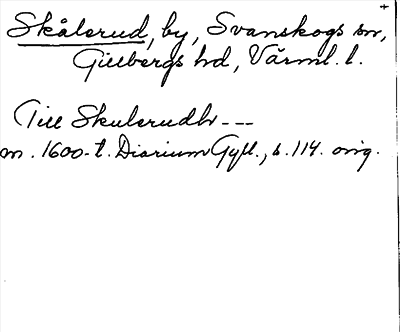 Skålsrud, by, Svanskogs sn,
Gillbergs hd, Värml. l.
Till Skulsrudh ---
m. 1600-t. Diarium Gyll., s. 114. orig.